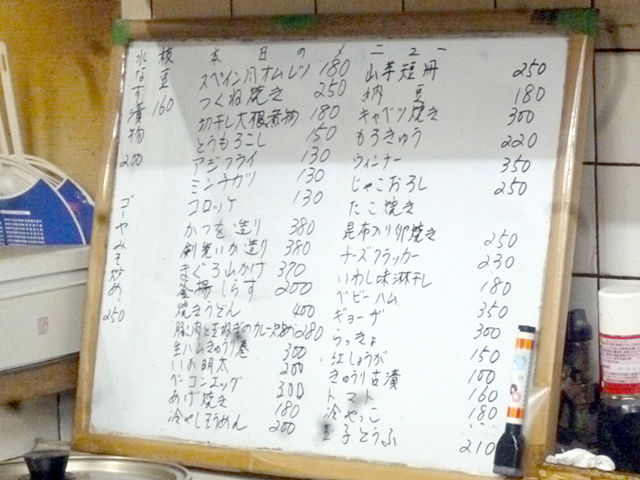 本日のメニュー
枝豆 160
水なす漬物 200
ゴーヤみそ炒め 250
スペイン風オムレツ 180
つくね焼き 250
切干し大根煮物 180
とうもろこし 150
アジフライ 130
ミンチカツ 130
コロッケ 130
かつを造り 380
剣先いか造り 380
まぐろ山かけ 370
釜揚しらす 200
焼きうどん 400
豚肉と玉ねぎのカレー炒め 280
生ハムきゅうり巻 300
いか明太 200
ベーコンエッグ 300
あげ焼き 180
冷やしそうめん 200
山芋短冊 250
納豆 180
キャベツ焼き 300
もろきゅう 220
ウィンナー 350
じゃこおろし 250
たこ焼き
昆布入り卵焼き 250
チーズクラッカー 230
いわし味淋干し 180
ベビーハム 350
ギョーザ 300
らっきょ 150
紅しょうが 100
きゅうり古漬 160
トマト 180
冷やっこ 〃
玉子とうふ 210